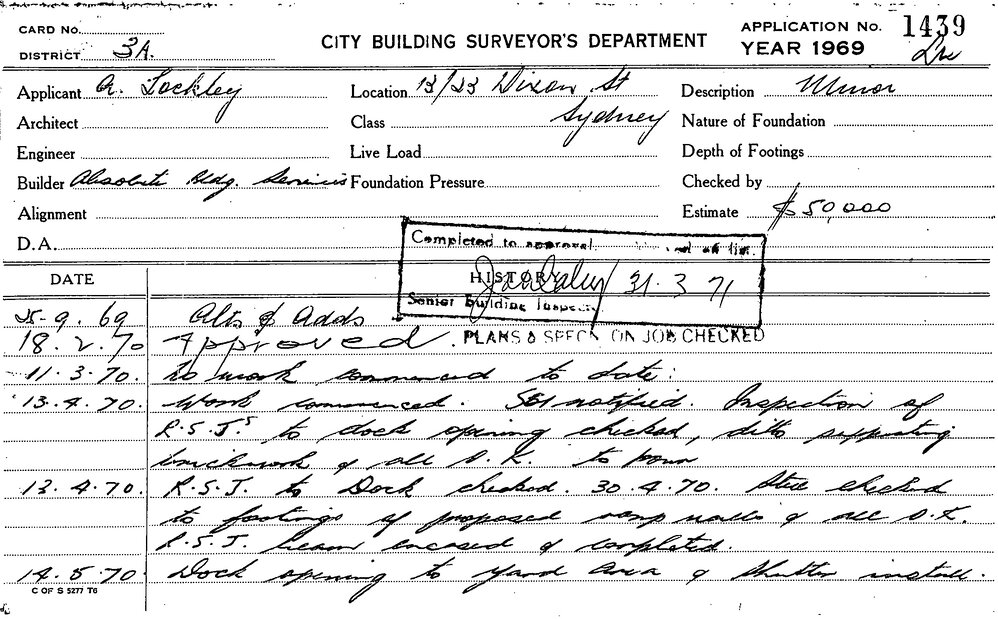 CARD No.
DISTRICT 3A.
CITY BUILDING SURVEYOR'S DEPARTMENT
APPLICATION No. 1439
YEAR 1969
Applicant A. Lockley
Location 13/23 Dixon St
Description Minor
Architect
Class Sydney
Nature of Foundation
Engineer
Live Load
Depth of Footings
Builder Absolute Bldg. Services
Foundation Pressure
Checked by
Alignment
Estimate $50,000
D.A.
Completed to approval
Senior Building Inspector
31.3.71
DATE
HISTORY
25-9.69 Alts & Adds
18.2.70 Approved. PLANS & SPECN ON JOB CHECKED
11.3.70. No work commenced to date.
13.4.70. Work commenced. notified. Inspection of
R.S.J.s to dock opening checked, ditto supporting
brickwork & all O.K. to pour
13.4.70. R.S.J. to Dock checked. 30.4.70. Steel checked
to footings of proposed ramp walls & all O.K.
R.S.J. beam encased & completed.
14.5.70. Dock opening to yard area & shutter install.
C OF S 5277 T6